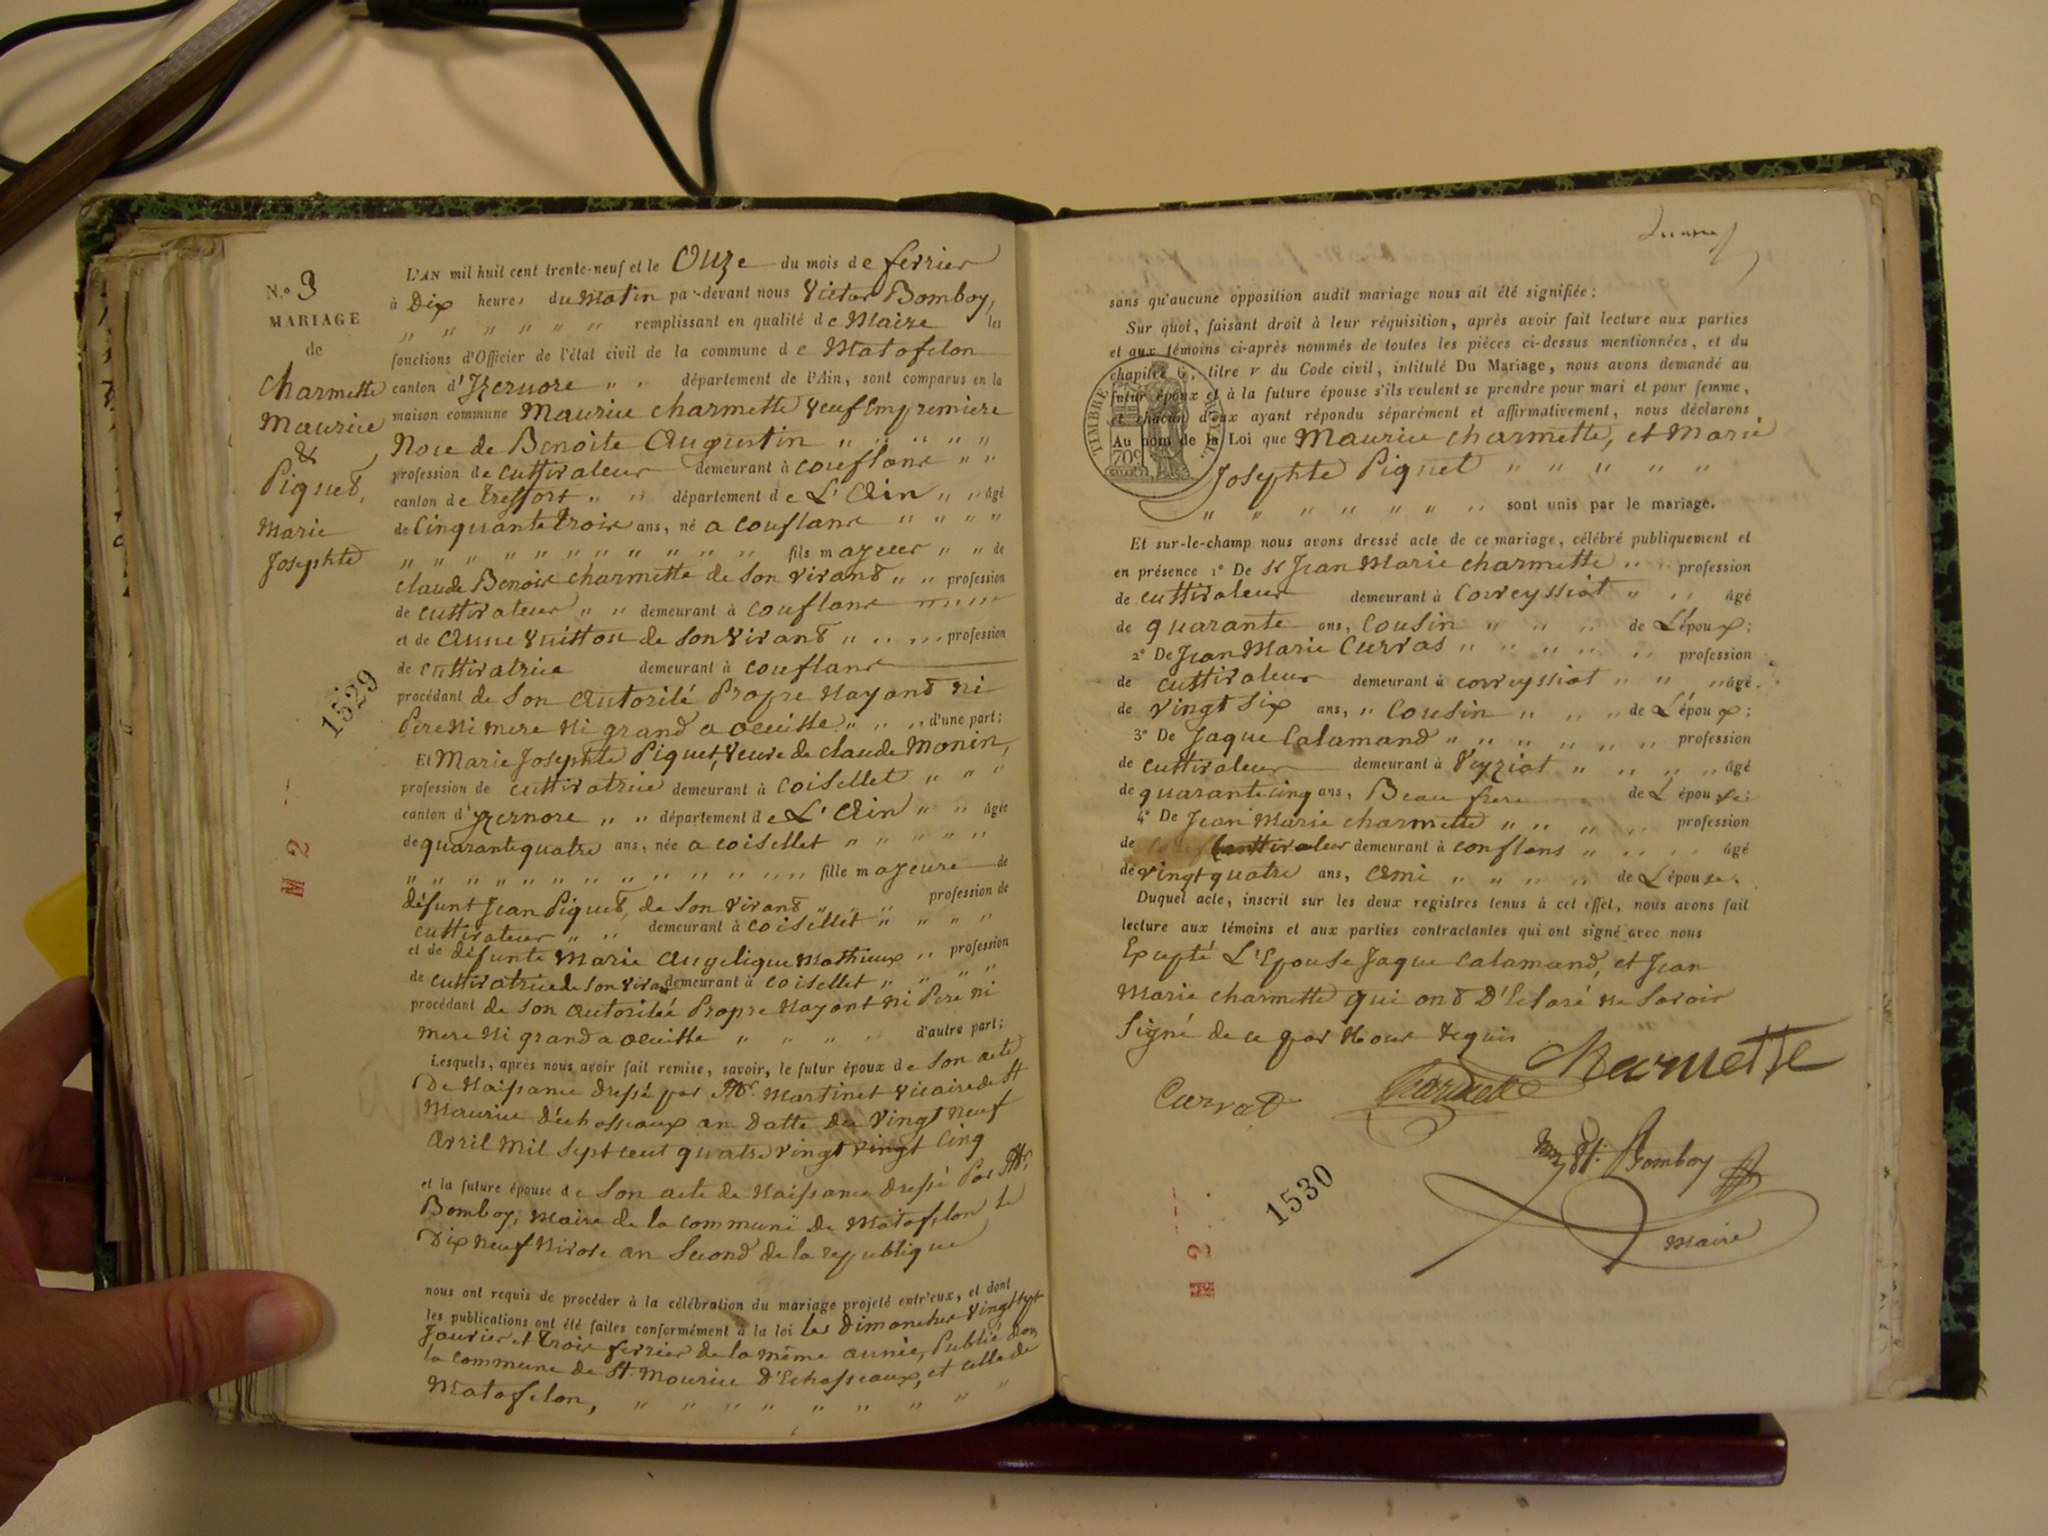 N.º 3
MARIAGE
de
Charmette
Maurice
&
Piquet,
Marie
Josephte
1529
L'AN mil huit cent trente-neuf et le Onze du mois de ferrier
à Dix heures du Matin par-devant nous Victor Bomboy,
" " " " " " remplissant en qualité de Maire les
fonctions d'Officier de l'état civil de la commune de Matafelon
canton d'Izernore " " département de l'Ain, sont comparus en la
maison commune Maurice charmette veuf Enpremiere
Noce de Benoite Augustin " " " " "
profession de cuttivateur demeurant à couflans " "
canton de Treffort " " département de L'Ain " " âgé
de Cinquante Trois ans, né a couflans " " " "
" " " " " " " " " " " fils majeur " " de
claude Benoit charmette de Son vivant " " profession
de cuttivateur " " demeurant à couflans
et de Anne Vuitton de Son vivant " " " profession
de cuttivatrice demeurant à couflans
procédant de Son Autorité Propre Nayant Ni
Pere Ni mere Ni grand a oeuille " " " d'une part;
Et Marie Josephte Piquet, Veuve de claude Monin,
profession de cuttivatrice demeurant à coisellet " " "
canton d'yzernore " " département de L'Ain " " âgée
de quarante quatre ans, née a coisellet " " " " "
" " " " " " " " " " " " fille majeure de
défunt Jean Piquet, de Son vivant " " " profession de
cuttivateur " " demeurant à coisellet " " " "
et de défunte Marie Angelique Mathieux " profession
de cuttivatrice de Son vivan demeurant à coisellet " " " "
procédant de Son autoritée Propre Nayant Ni Pere Ni
mere Ni grand a oeuille " " " " d'autre part;
Lesquels, après nous avoir fait remise, savoir, le futur époux de Son acte
De Naissance dressé par Mr. Martinet Vicaire de St
Maurice d'échasseaux an datte du Vingt Neuf
Avril Mil Sept cent quatre vingt vingt Cinq
et la future épouse de Son acte de Naissance dressé Par Mr.
Bomboy, Maire de la commune de Matafelon le
Dix Neuf Nivose an Second de la republique
nous ont requis de procéder à la célébration du mariage projeté entr'eux, et dont
les publications ont été faites conformément à la loi les Dimanches Vingt Sept
Janvier et Trois ferrier de la même année, Publié dans
la commune de St. Maurice D'Echasseaux, et celle de
Matafelon, " " " " " " " "
sans qu'aucune opposition audit mariage nous ait été signifiée;
Sur quoi, faisant droit à leur réquisition, après avoir fait lecture aux parties
et aux témoins ci-après nommés de toutes les pièces ci-dessus mentionnées, et du
chapitre 6, titre v du Code civil, intitulé Du Mariage, nous avons demandé au
futur époux et à la future épouse s'ils veulent se prendre pour mari et pour femme,
et chacun d'eux ayant répondu séparément et affirmativement, nous déclarons
Au nom de la Loi que Maurice charmette, et Marie
Josephte Piquet " " " " "
" " " " " " " sont unis par le mariage.
TIMBRE ROYAL
70c
Et sur-le-champ nous avons dressé acte de ce mariage, célébré publiquement et
en présence 1º De Sr Jean Marie charmette " " profession
de cuttivateur demeurant à Corveyssiat " " âgé
de quarante ans, Cousin " " " de L'époux;
2º De Jean Marie Curvas " " " " " " profession
de cuttivateur demeurant à corveyssiat " " " âgé
de vingt Six ans, " Cousin " " " de L'époux;
3º De Jaque Calamand " " " " " " profession
de cuttivateur demeurant à Veyziat " " " " âgé
de quarante Cinq ans, Beau frere de L'épouse;
4º De Jean Marie charmette " " " " profession
de cuttivateur demeurant à conflens " " " " âgé
de vingt quatre ans, Ami " " " " de L'épouse.
Duquel acte, inscrit sur les deux registres tenus à cet effet, nous avons fait
lecture aux témoins et aux parties contractantes qui ont signé avec nous
Exepté L'Epouse Jaque Calamand, et Jean
Marie charmette qui ont D'Eclaré Ne Savoir
Signé de ce par Nous requis
Charmette
Curvat
Charmette
Bomboy
Maire
1530